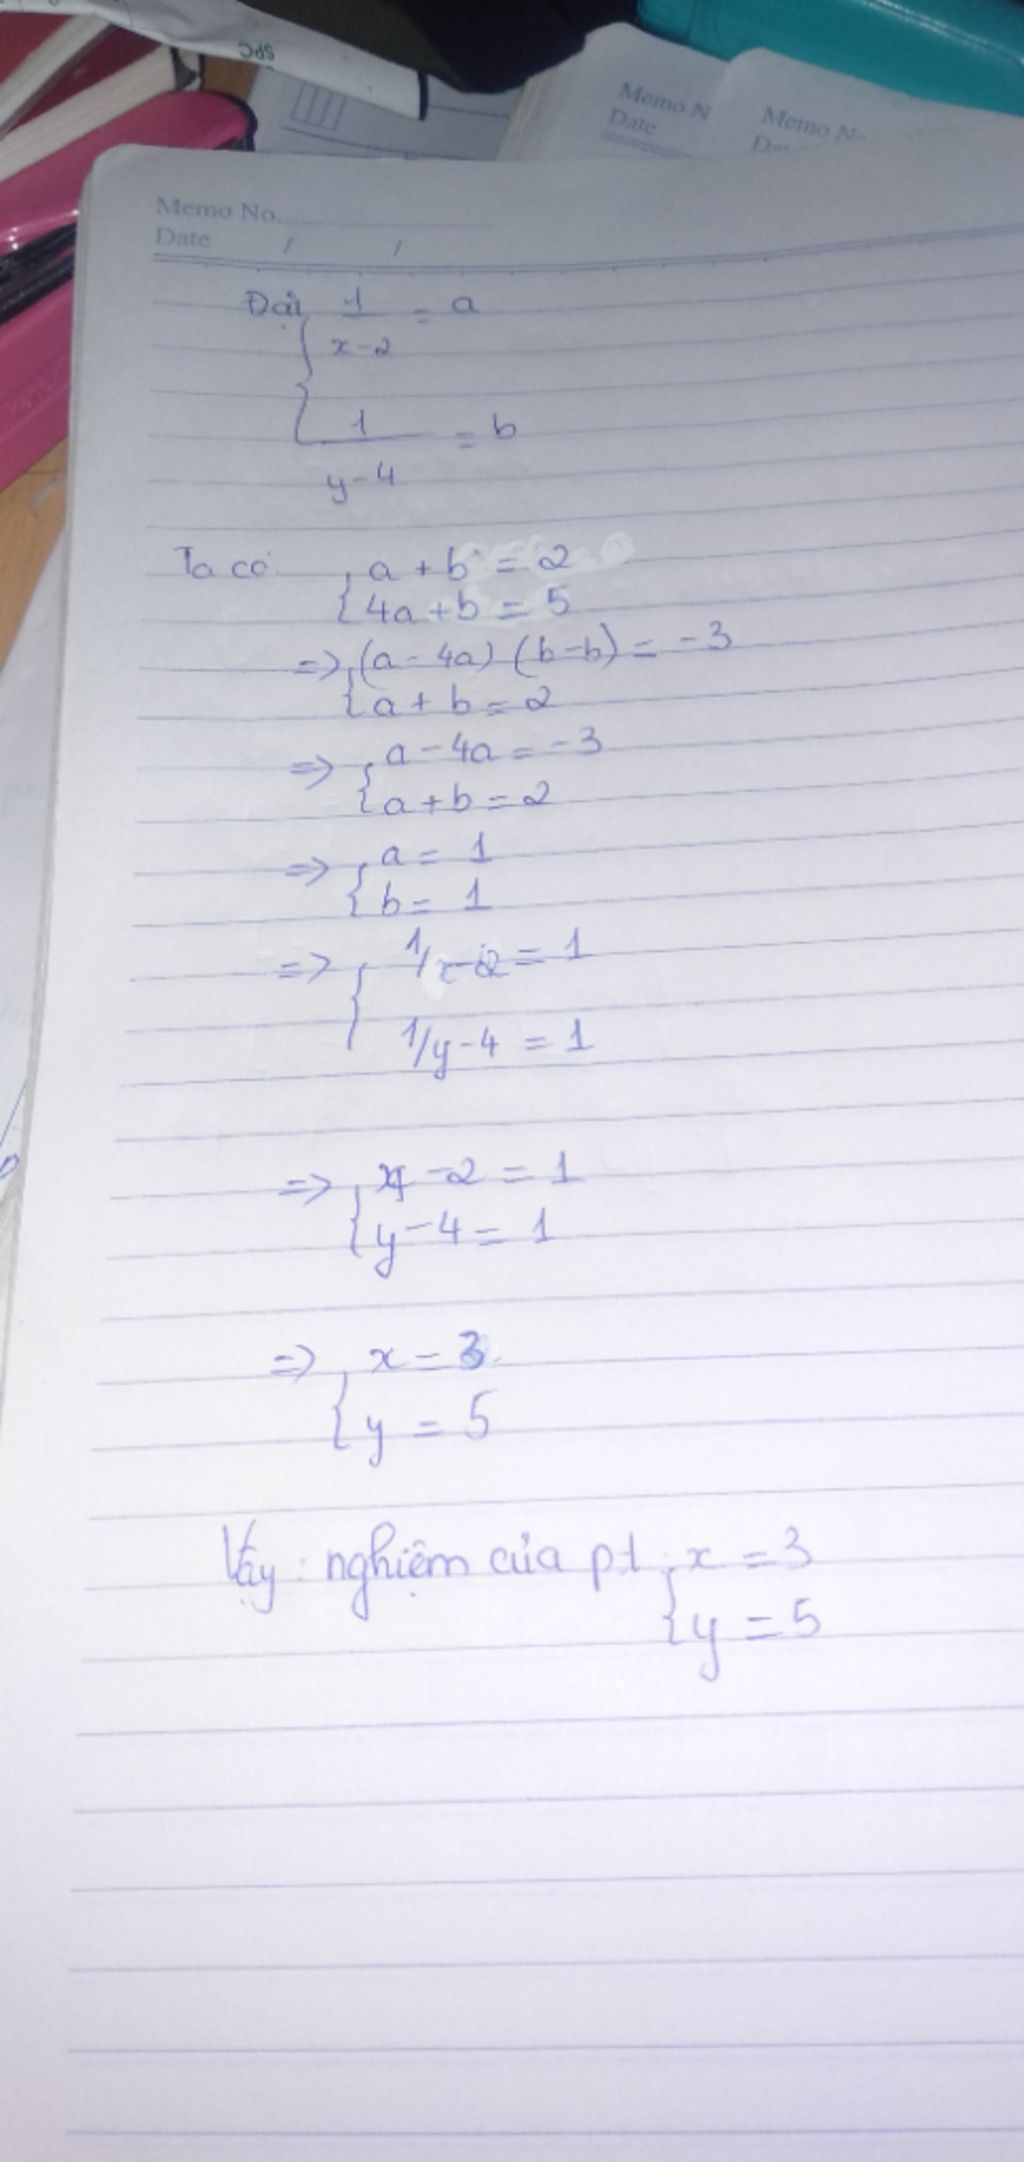 SPC
Memo N
Date
Memo No
Memo No.
Date / /
Đặt 1/x-2 = a
1/y-4 = b
Ta có a + b = 2
4a + b = 5
=> (a - 4a) (b - b) = -3
a + b = 2
=> a - 4a = -3
a + b = 2
=> a = 1
b = 1
=> 1/x-2 = 1
1/y-4 = 1
=> x - 2 = 1
y - 4 = 1
=> x = 3
y = 5
Vậy : nghiệm của pt x = 3
y = 5